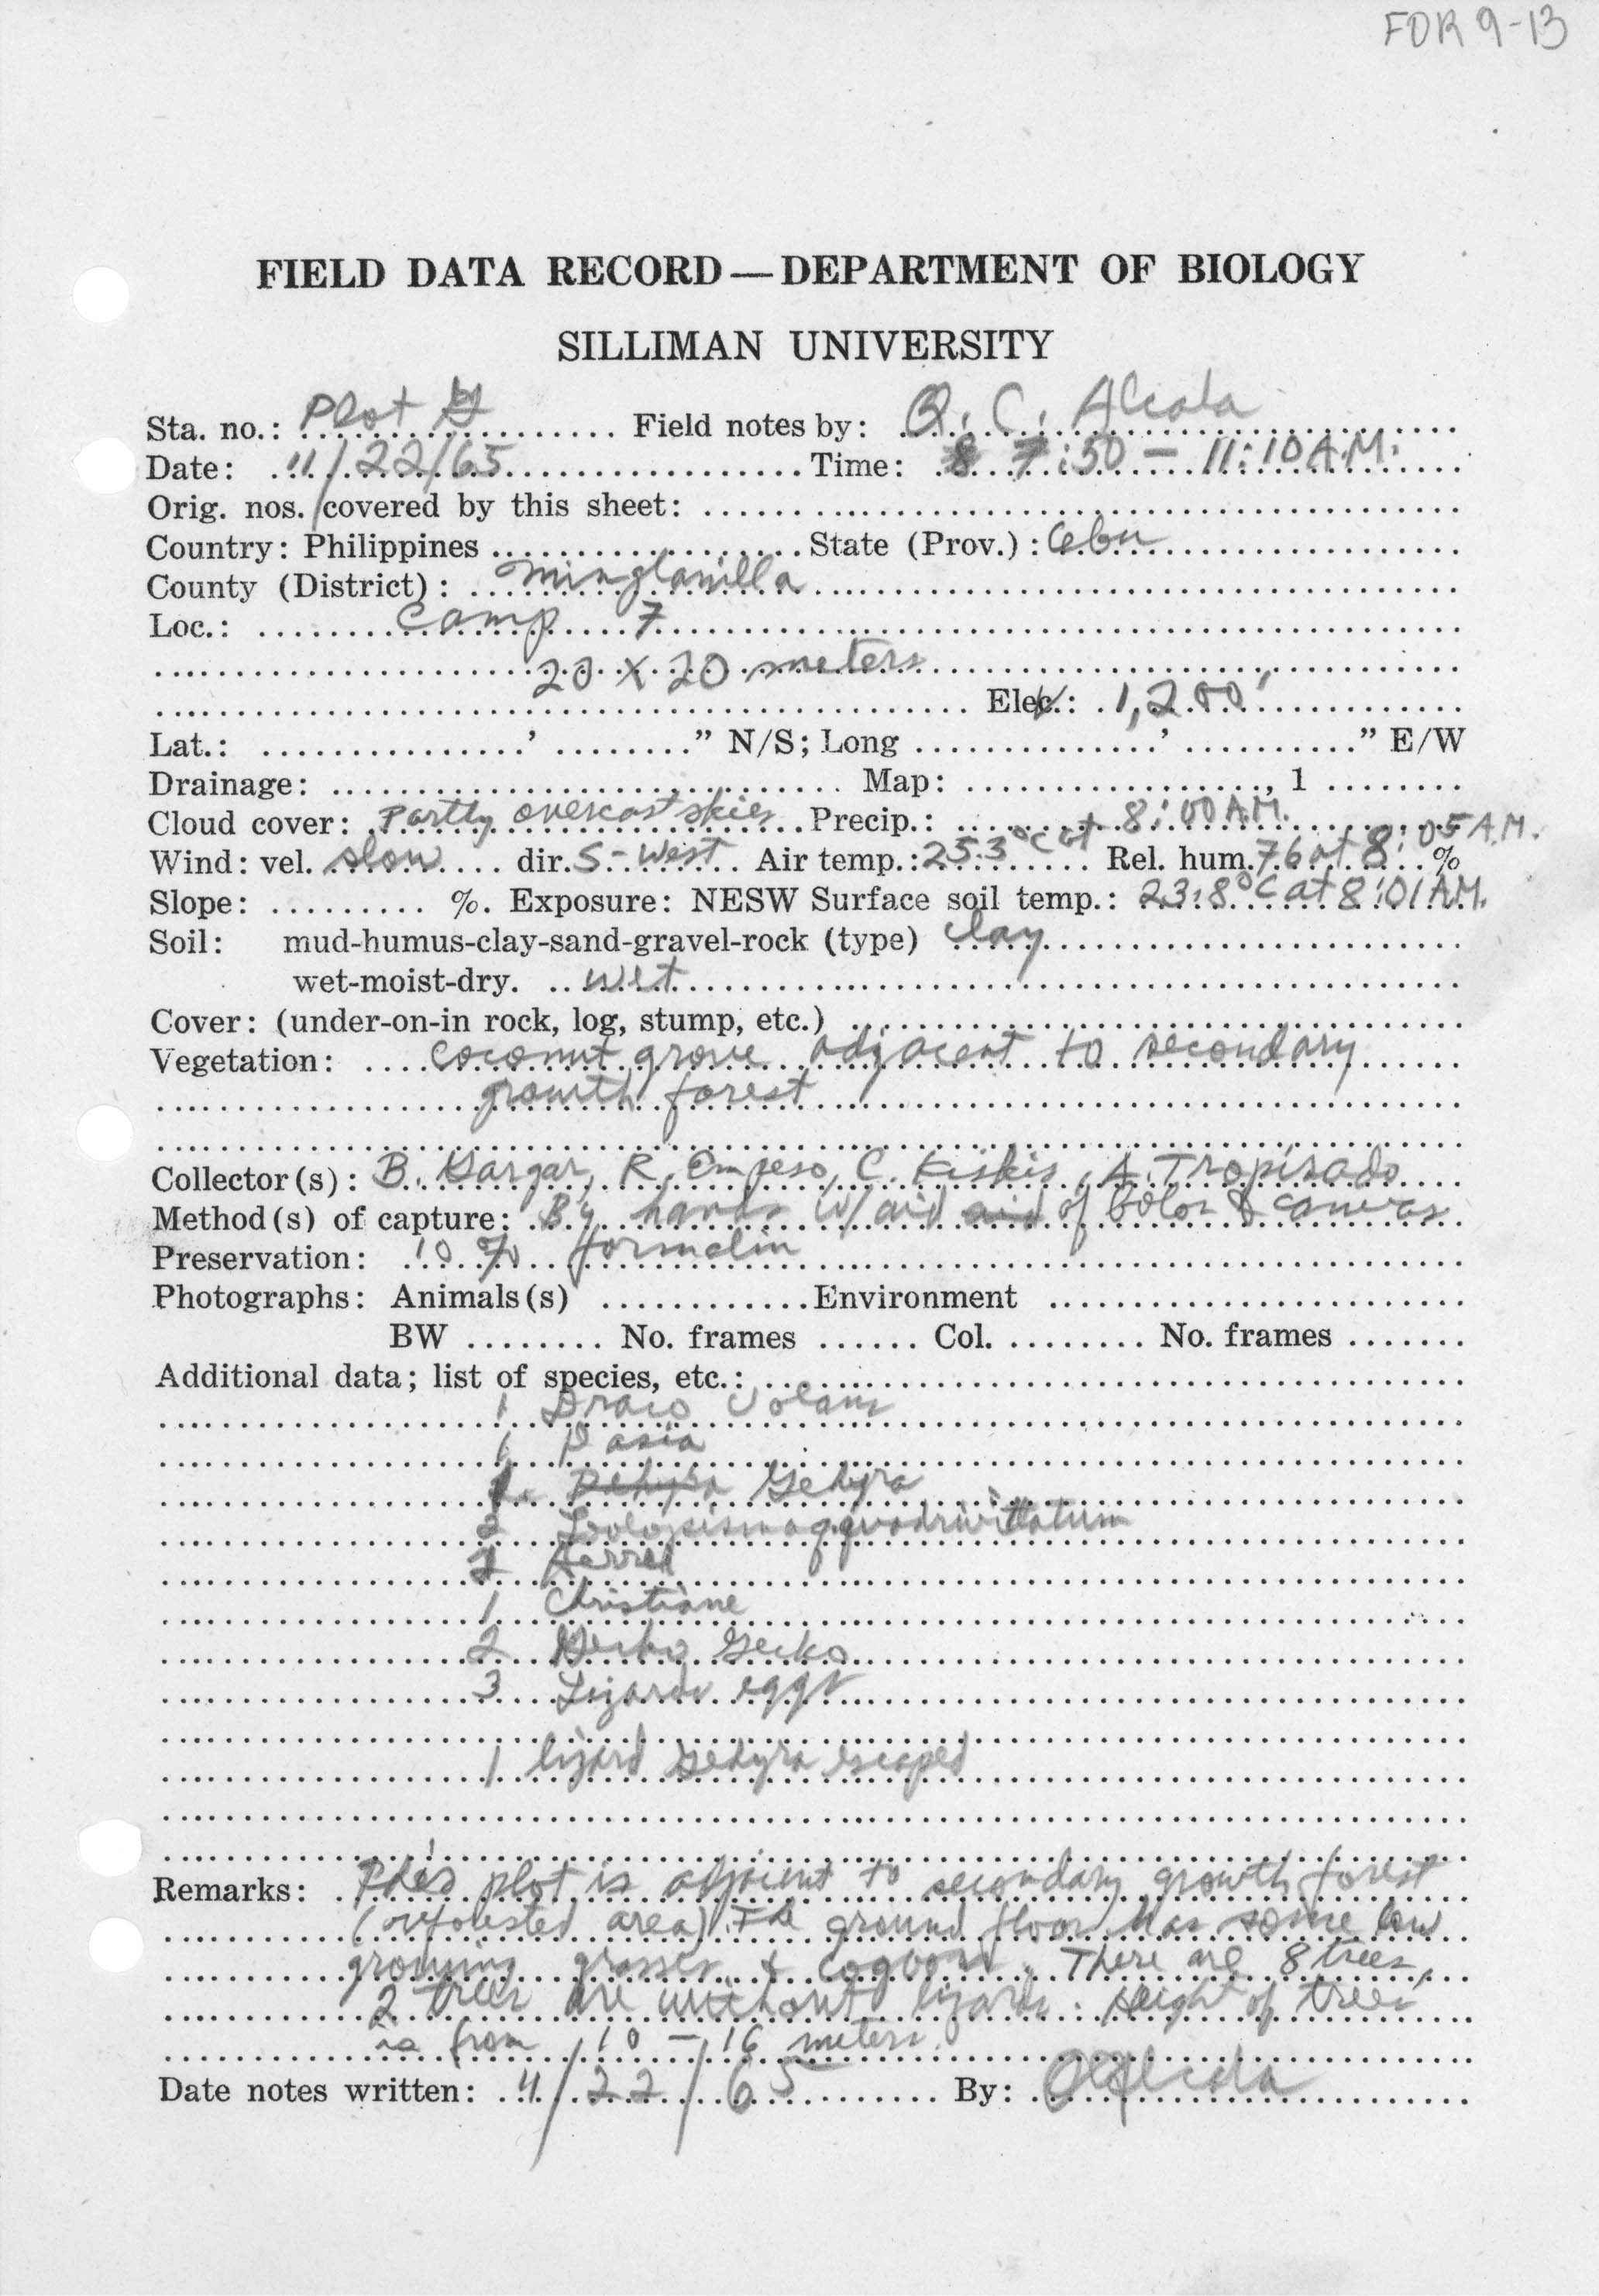 FDR 9-13
FIELD DATA RECORD—DEPARTMENT OF BIOLOGY
SILLIMAN UNIVERSITY
Sta. no.: Plot Field notes by: Q. C. Alcala
Date: 11/22/65 Time: 7:50 - 11:10 A.M.
Orig. nos. covered by this sheet:
Country: Philippines State (Prov.): Cebu
County (District): Minglanilla
Loc.: Camp 7
20 x 20 meters
Elec.: 1,200'
Lat.: ' " N/S; Long ' " E/W
Drainage: Map: , 1
Cloud cover: Partly overcast skies Precip.:
Wind: vel. slow dir. S-West Air temp.: 25.3°C at 8:00 A.M. Rel. hum. 76 at 8:05 A.M. %
Slope: %. Exposure: NESW Surface soil temp.: 23.8°C at 8:01 A.M.
Soil: mud-humus-clay-sand-gravel-rock (type) clay
wet-moist-dry. wet
Cover: (under-on-in rock, log, stump, etc.)
Vegetation: coconut grove adjacent to secondary
growth forest
Collector(s): B. Gargar, R. Empeso, C. A. Tropisado
Method(s) of capture: By hands w/ aid aid of bolos & canvas
Preservation: 10% formalin
Photographs: Animals(s) Environment
BW No. frames Col. No. frames
Additional data; list of species, etc.:
1 Draco volans
1 Dasia
Gehyra
2 quadrivittatum
1 Christiane
2 Gecko gecko
3 Lizard eggs
1 lizard Gehyra escaped
Remarks: This plot is adjacent to secondary growth forest
area). The ground floor has some low
growing grasses & cogons. There are 8 trees,
2 trees are without lizards. Height of trees
is from 10 - 16 meters.
Date notes written: 11/22/65 By: QAlcala